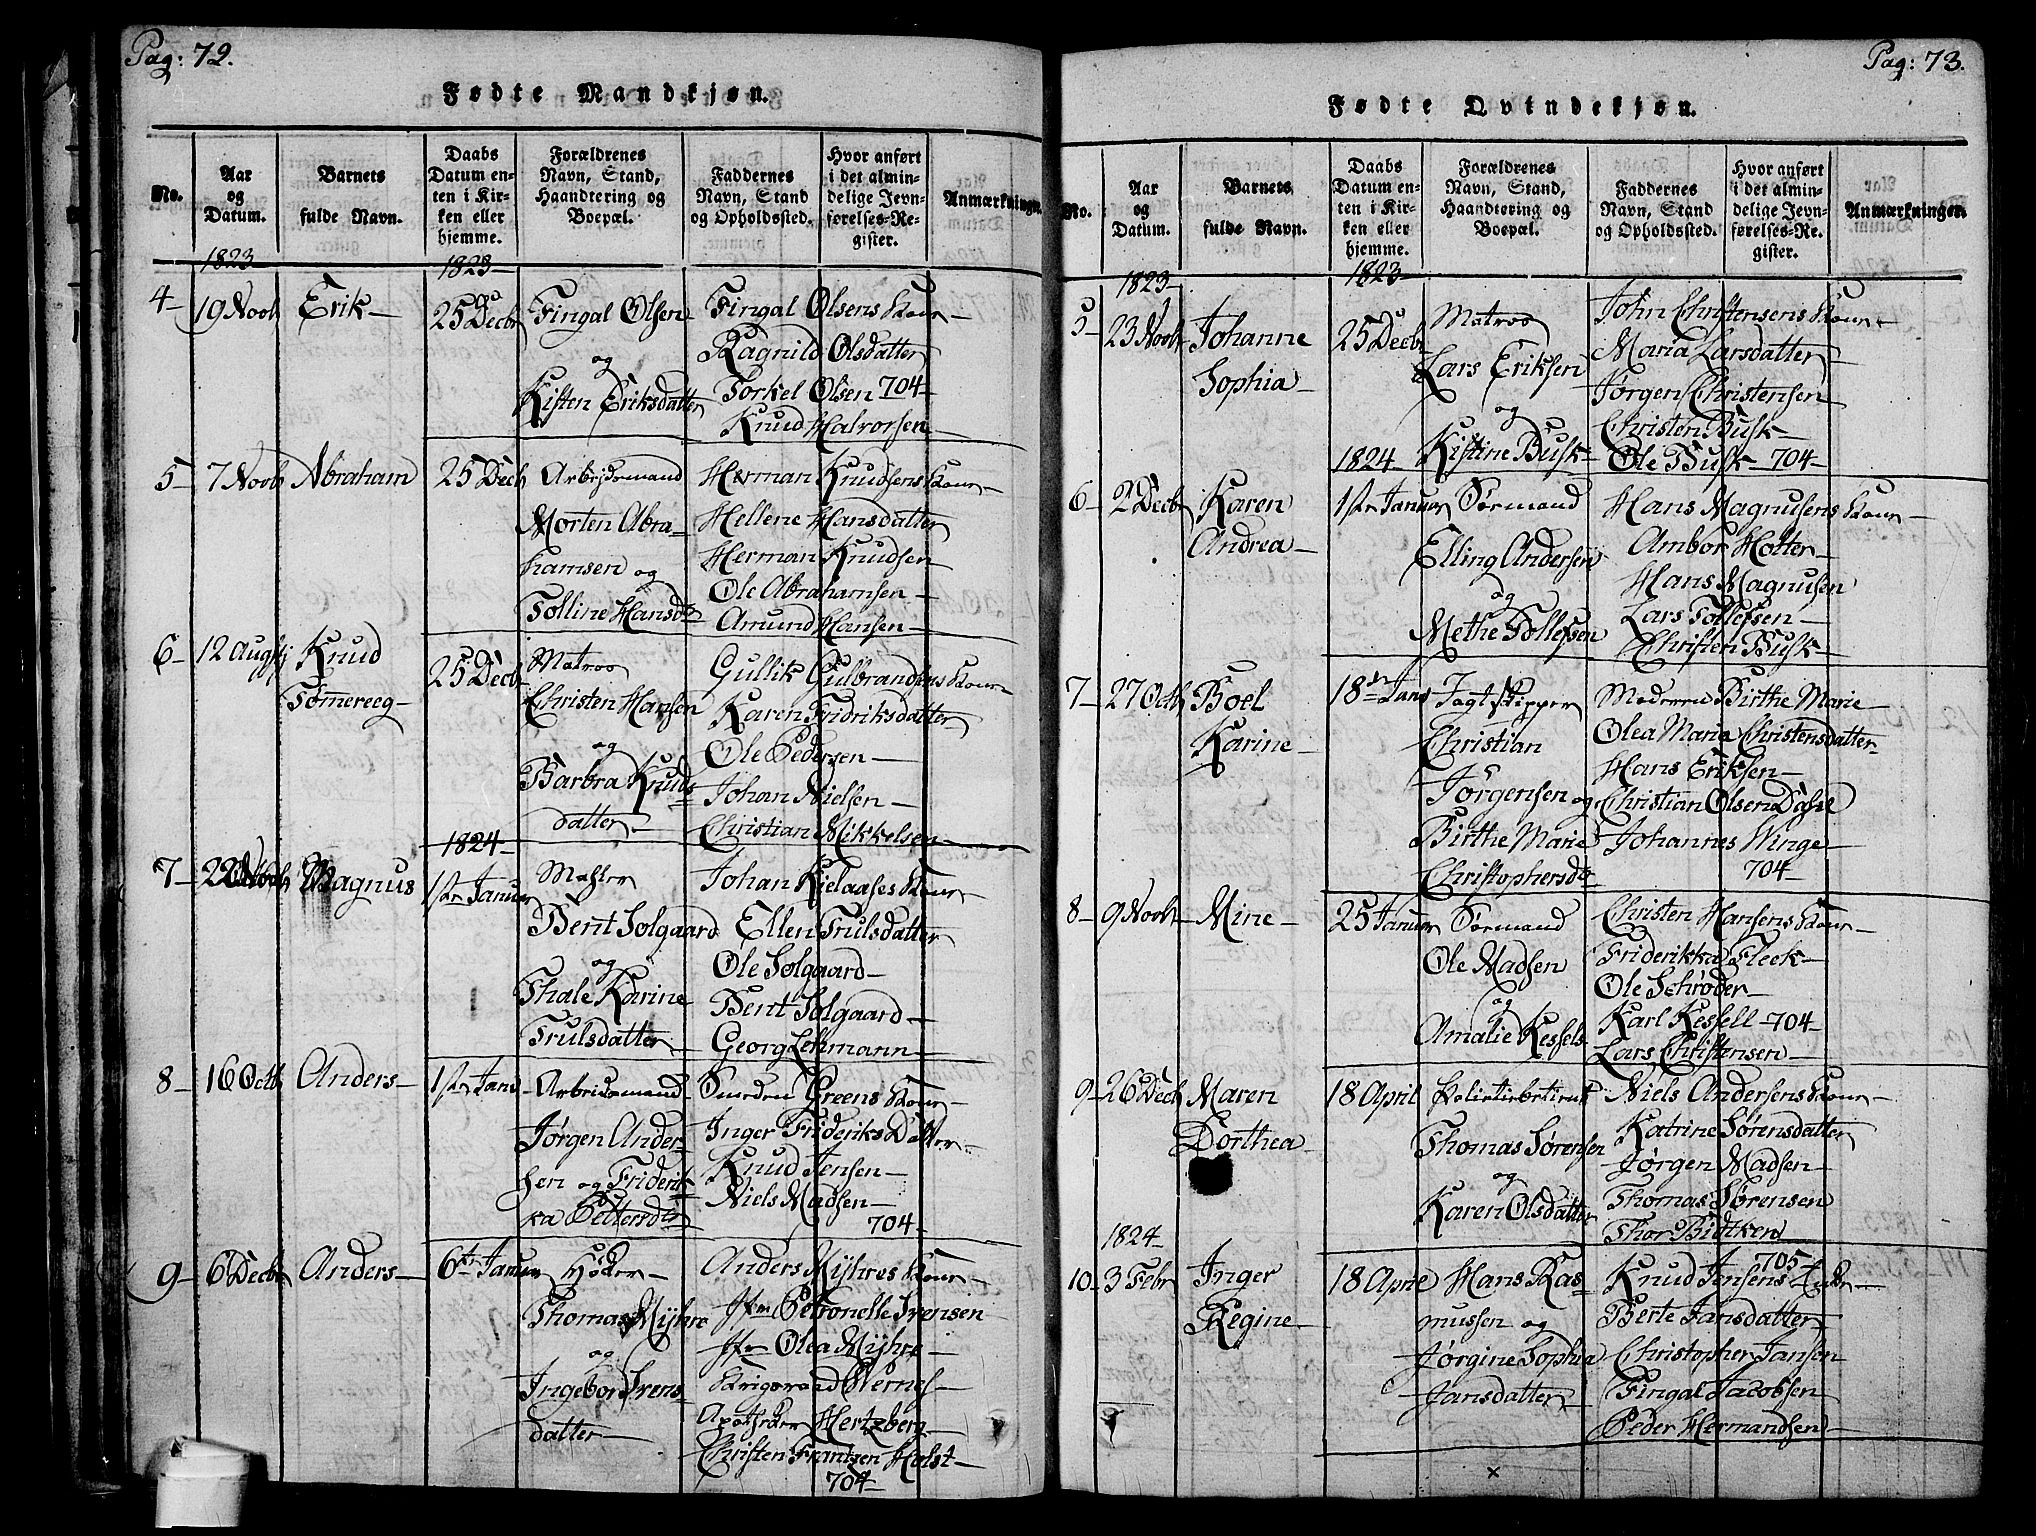 Pag: 72.
Fødte Mandkjøn.
No.
Aar og Datum.
Barnets fulde Navn.
Daabs Datum enten i Kirken eller hjemme.
Forældrenes Navn, Stand, Haandtering og Boepæl.
Faddernes Navn, Stand og Opholdssted.
Hvor anført i det almindelige Jevnførelses-Register.
Anmærkninger.
1823
1823
4 19 Novb Erik
25 Decb
Fingal Olsen
og
Kisten Eriksdatter
Fingal Olsens Kone
Ragnild Olsdatter
Torkel Olsen 704
Knud Halvorsen
5 7 Novb Abraham
25 Decb
Arbejdsmand
Morten Abra
hamsen og
Tolline Hansd
Herman Knudsens Kone
Hellene Hansdatter
Herman Knudsen
Ole Abrahamsen
Amund Hansen
6 12 Augst Knud
25 Decb
Matros
Christen Hansen
og
Barbra Knuds
datter
Gullik Gulbrandsens Kone
Karen Fridriksdatter
Ole Pedersen
Johan Nielsen
Christian Mikkelsen
1824
7 22 Novb Magnus
1ste Januar
Bent Solgaard
og
Thale Karine
Trulsdatter
Johan Kielaases Kone
Ellen Trulsdatter
Ole Solgaard
Bent Solgaard
Georg Lehmann
8 16 Octb Anders
1ste Janu
Arbeidsmand
Jørgen Ander
sen og Friderik
ka Pettersd
Smeden Greens Kone
Inger Frideriks Datter
Knud Jensen
Niels Madsen
704
9 6 Decbr Anders
6te Januar
Høker
Thomas Myhre
og
Ingebor Irens
datter
Anders Myhres Kone
Jfr Petronelle Irensen
Jfr Olea Myhre
Apotheker Hertzberg
Christen Frantzen Holst
704
Pag: 73.
Fødte Qvindekjøn.
No.
Aar og Datum.
Barnets fulde Navn.
Daabs Datum enten i Kirken eller hjemme.
Forældrenes Navn, Stand, Haandtering og Boepæl.
Faddernes Navn, Stand og Opholdssted.
Hvor anført i det almindelige Jevnførelses-Register.
Anmærkninger.
1823
1823
5 23 Novb Johanne
Sophia
25 Decb
Matros
Lars Eriksen
og
Kistine Busk
John Christensens Kone
Maria Larsdatter
Jørgen Christensen
Christen Busk
Ole Busk 704
1824
6 2 Decb Karen
Andrea
1ste Januar
Sørmand
Elling Andersen
og
Methe Tollefsen
Hans Magnusens Kone
Ambor Holter
Hans Magnusen
Lars Tollefsen
Christen Busk
7 27 Octb Boel
Karine
18de Janu
Jagtskipper
Christian
Jørgensen og
Birthe Marie
Christophersd
Moderen Birthe Marie
Olea Maria Christensdatter
Hans Eriksen
Christian Olsen Dahl
Johannes Winge
704
8 9 Novb Mine
25 Januar
Sørmand
Ole Madsen
og
Amalie Kessels
Christen Hansens Kone
Friderikka Fleek
Ole Schrøder
Karl Kessell 704
Lars Christensen
9 26 Decb Maren
Dorthea
18 April
Politiebetient
Thomas Sørensen
og
Karen Olsdatter
Niels Andersens Kone
Katrine Sørensdatter
Jørgen Madsen
Thomas Sørensen
Thor Bidtken
1824
705
10 3 Febr Inger
Regine
18 Aprie
Hans Ras
mussen og
Jørgine Sophia
Jansdatter
Knud Jensens Enke
Berte Jansdatter
Christopher Jansen
Fingal Jacobsen
Peder Hermandsen